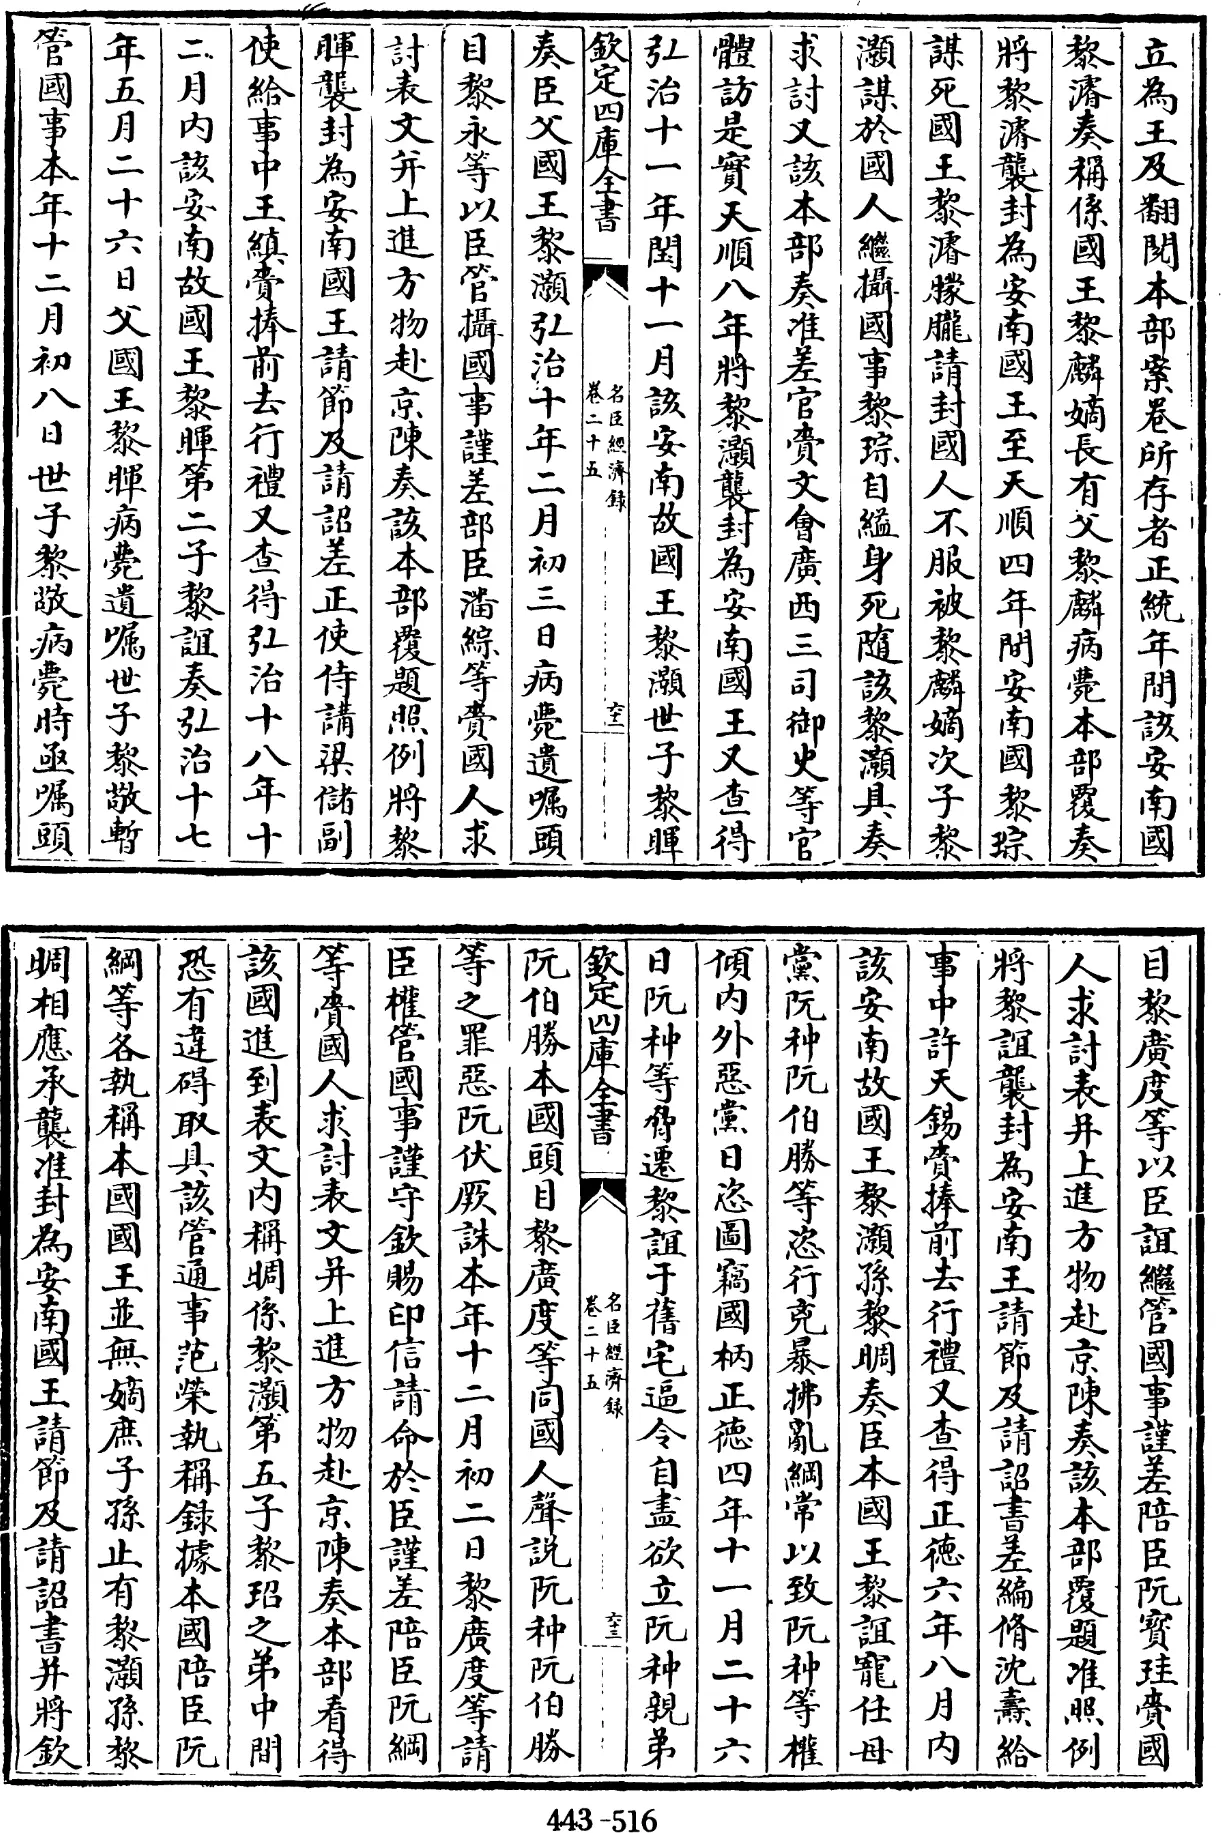 立為王及翻閱本部案卷所存者正統年間該安南國
黎濬奏稱係國王黎麟嫡長有父黎麟病薨本部覆奏
將黎濬襲封為安南國王至天順四年間安南國黎琮
謀死國王黎濬朦朧請封國人不服被黎麟嫡次子黎
灝謀於國人繼攝國事黎琮自縊身死隨該黎灝具奏
求討又該本部奏准差官賫文會廣西三司御史等官
體訪是實天順八年將黎灝襲封為安南國王又查得
弘治十一年閏十一月該安南故國王黎灝世子黎暉
欽定四庫全書
名臣經濟錄
卷二十五
六二
奏臣父國王黎灝弘治十年二月初三日病薨遺囑頭
目黎永等以臣管攝國事謹差部臣潘綜等賫國人求
討表文并上進方物赴京陳奏該本部覆題照例將黎
暉襲封為安南國王請節及請詔差正使侍講梁儲副
使給事中王縝賫捧前去行禮又查得弘治十八年十
二月內該安南故國王黎暉第二子黎誼奏弘治十七
年五月二十六日父國王黎暉病薨遺囑世子黎敬暫
管國事本年十二月初八日世子黎敬病薨時亟囑頭
目黎廣度等以臣誼繼管國事謹差陪臣阮寳珪賫國
人求討表并上進方物赴京陳奏該本部覆題准照例
將黎誼襲封為安南王請節及請詔書差編脩沈燾給
事中許天錫賫捧前去行禮又查得正德六年八月內
該安南故國王黎灝孫黎晭奏臣本國王黎誼寵任母
黨阮种阮伯勝等恣行兇暴拂亂綱常以致阮种等權
傾內外惡黨日恣圖竊國柄正德四年十一月二十六
日阮种等脅遷黎誼于舊宅逼令自盡欲立阮种親弟
欽定四庫全書
名臣經濟錄
卷二十五
六三
阮伯勝本國頭目黎廣度等同國人聲說阮种阮伯勝
等之罪惡阮伏厥誅本年十二月初二日黎廣度等請
臣權管國事謹守欽賜印信請命於臣謹差陪臣阮綱
等賫國人求討表文并上進方物赴京陳奏本部看得
該國進到表文內稱晭係黎灝第五子黎玿之弟中間
恐有違碍取具該管通事范榮執稱錄據本國陪臣阮
綱等各執稱本國國王並無嫡庶子孫止有黎灝孫黎
晭相應承襲准封為安南國王請節及請詔書并將欽
443-516